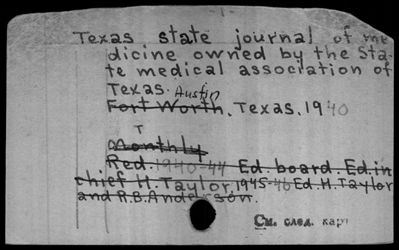 Texas state journal of me
dicine owned by the Sta-
te medical association of
Texas. Austin
Fort Worth, Texas. 1940
T
monthly
Red. 1940-44 Ed. board. Ed. in
chief H. Taylor, 1945-46 Ed. H. Taylor
and R.B. Anderson.
См. след. карт